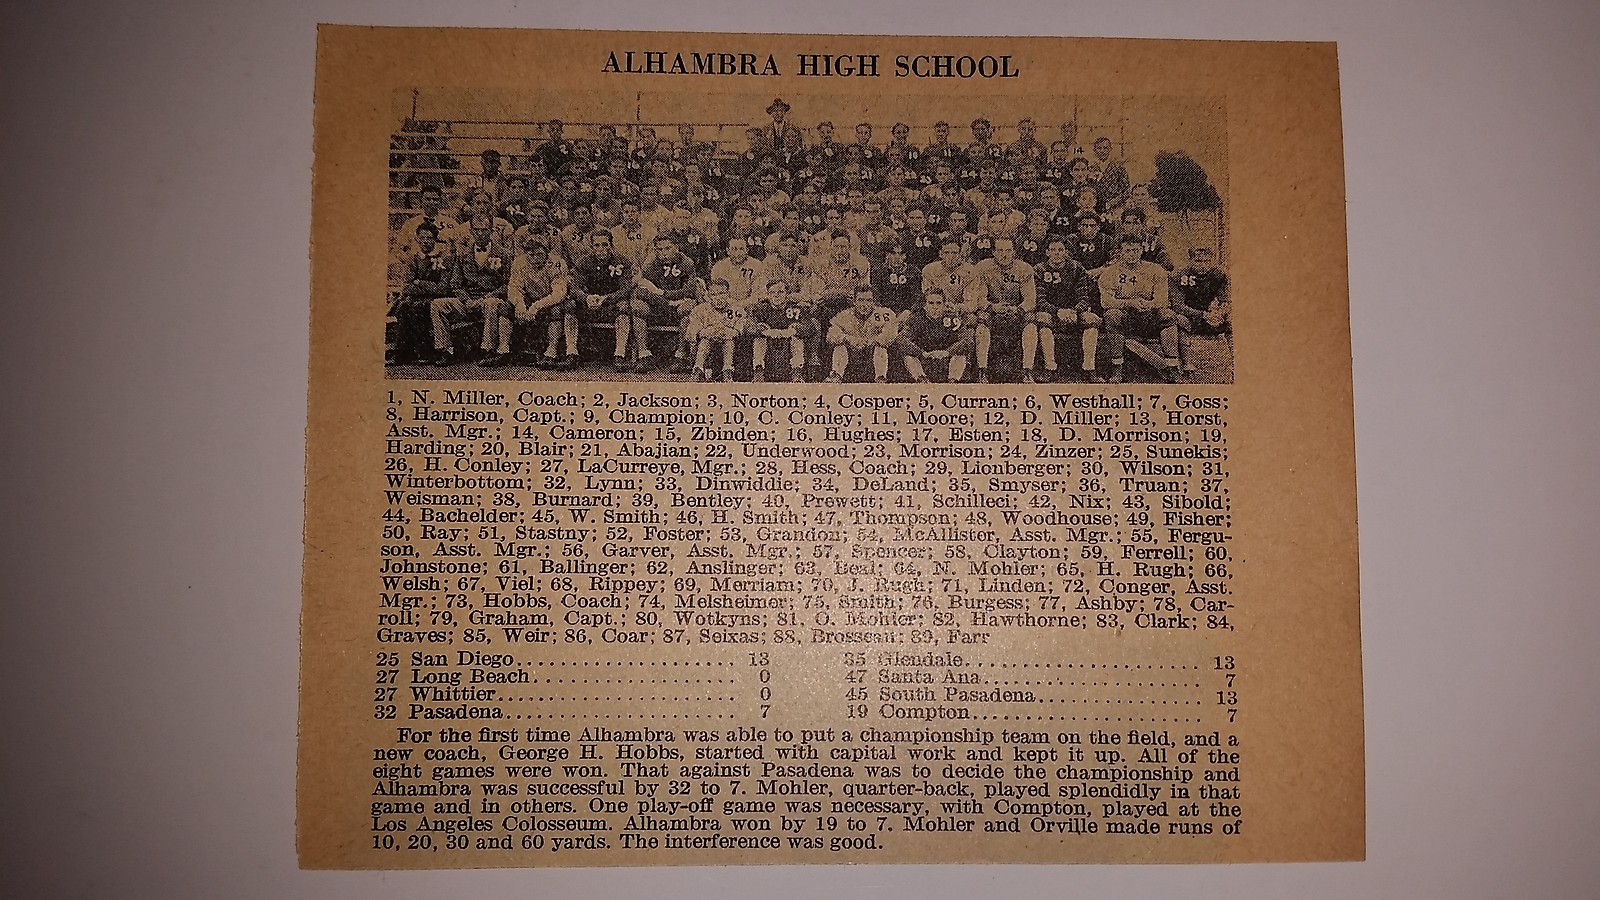 ALHAMBRA HIGH SCHOOL
1, N. Miller, Coach; 2, Jackson; 3, Norton; 4, Cosper; 5, Curran; 6, Westhall; 7, Goss;
8, Harrison, Capt.; 9, Champion; 10, C. Conley; 11, Moore; 12, D. Miller; 13, Horst,
Asst. Mgr.; 14, Cameron; 15, Zbinden; 16, Hughes; 17, Esten; 18, D. Morrison; 19,
Harding; 20, Blair; 21, Abajian; 22, Underwood; 23, Morrison; 24, Zinzer; 25, Sunekis;
26, H. Conley; 27, LaCurreye, Mgr.; 28, Hess, Coach; 29, Lionberger; 30, Wilson; 31,
Winterbottom; 32, Lynn; 33, Dinwiddie; 34, DeLand; 35, Smyser; 36, Truan; 37,
Weisman; 38, Burnard; 39, Bentley; 40, Prewett; 41, Schilleci; 42, Nix; 43, Sibold;
44, Bachelder; 45, W. Smith; 46, H. Smith; 47, Thompson; 48, Woodhouse; 49, Fisher;
50, Ray; 51, Stastny; 52, Foster; 53, Grandon; 54, McAllister, Asst. Mgr.; 55, Fergu-
son, Asst. Mgr.; 56, Garver, Asst. Mgr.; 57, Spencer; 58, Clayton; 59, Ferrell; 60,
Johnstone; 61, Ballinger; 62, Anslinger; 63, Beal; 64, N. Mohler; 65, H. Rugh; 66,
Welsh; 67, Viel; 68, Rippey; 69, Merriam; 70, J. Rugh; 71, Linden; 72, Conger, Asst.
Mgr.; 73, Hobbs, Coach; 74, Melsheimer; 75, Smith; 76, Burgess; 77, Ashby; 78, Car-
roll; 79, Graham, Capt.; 80, Wotkyns; 81, O. Mohler; 82, Hawthorne; 83, Clark; 84,
Graves; 85, Weir; 86, Coar; 87, Seixas; 88, Brosseau; 89, Farr
25 San Diego.................... 13 35 Glendale...................... 13
27 Long Beach................... 0 47 Santa Ana..................... 7
27 Whittier..................... 0 45 South Pasadena............... 13
32 Pasadena..................... 7 19 Compton...................... 7
For the first time Alhambra was able to put a championship team on the field, and a
new coach, George H. Hobbs, started with capital work and kept it up. All of the
eight games were won. That against Pasadena was to decide the championship and
Alhambra was successful by 32 to 7. Mohler, quarter-back, played splendidly in that
game and in others. One play-off game was necessary, with Compton, played at the
Los Angeles Colosseum. Alhambra won by 19 to 7. Mohler and Orville made runs of
10, 20, 30 and 60 yards. The interference was good.